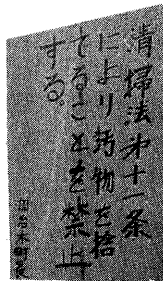 清掃法第十一条
により汚物を捨
てることを禁止
する。